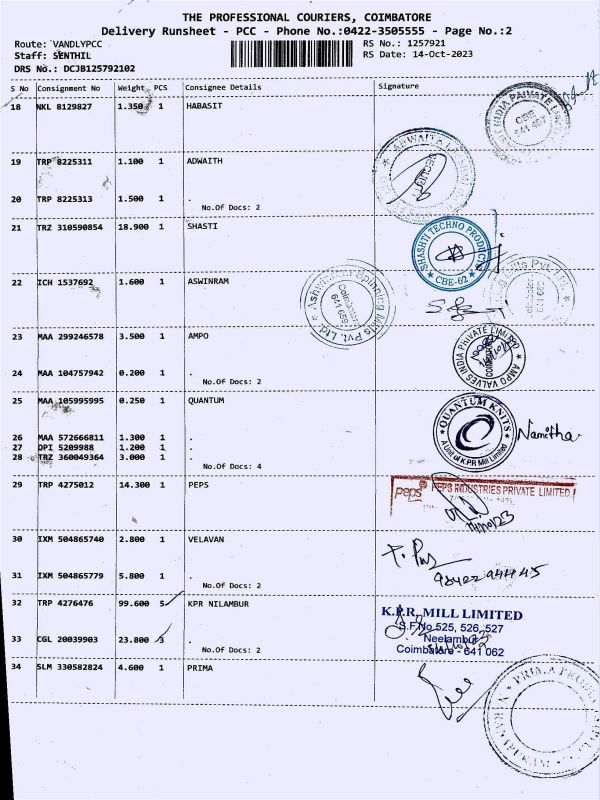 THE PROFESSIONAL COURIERS, COIMBATORE
Delivery Runsheet - PCC - Phone No.:0422-3505555 - Page No.:2
Route: VANDLYPCC
RS No.: 1257921
Staff: SENTHIL
RS Date: 14-Oct-2023
DRS No.: DCJB125792102
S No Consignment No Weight PCS Consignee Details Signature
18 NKL 8129827 1.350 1 HABASIT
INDIA PRIVATE
CBE
641 407
19 TRP 8225311 1.100 1 ADWAITH
SECURITY
20 TRP 8225313 1.500 1 .
No.Of Docs: 2
21 TRZ 310590854 18.900 1 SHASTI
SHASHTI TECHNO PRODUCTS
CBE-62
22 ICH 1537692 1.600 1 ASWINRAM
Spinning Mills Pvt. Ltd.
Coimbatore
641 659
Mills Pvt. Ltd.
23 MAA 299246578 3.500 1 AMPO
AMPO VALVES INDIA PRIVATE LIMITED
COIMBATORE
24 MAA 104757942 0.200 1 .
No.Of Docs: 2
25 MAA 105995995 0.250 1 QUANTUM
QUANTUM KNITS
A Unit of K.P.R Mill Limited
Namitha
26 MAA 572666811 1.300 1 .
27 DPI 5209988 1.200 1 .
28 TRZ 360049364 3.000 1 .
No.Of Docs: 4
29 TRP 4275012 14.300 1 PEPS
peps PEPS INDUSTRIES PRIVATE LIMITED
14/10/23
30 IXM 504865740 2.800 1 VELAVAN
31 IXM 504865779 5.800 1 .
No.Of Docs: 2
32 TRP 4276476 99.600 5 KPR NILAMBUR
K.P.R. MILL LIMITED
S.F.No.525, 526, 527
Neelambur
Coimbatore - 641 062
33 CGL 20039903 23.800 3 .
No.Of Docs: 2
34 SLM 330582824 4.600 1 PRIMA